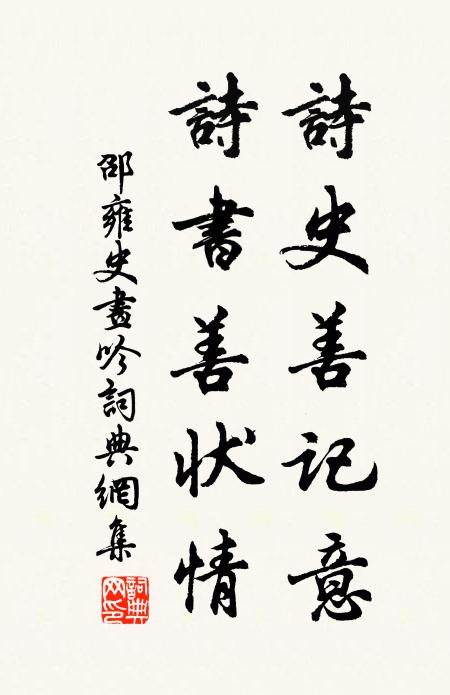 詩史善记意
詩書善状情
邵雍史畫吟詞典網集
詞典
网印